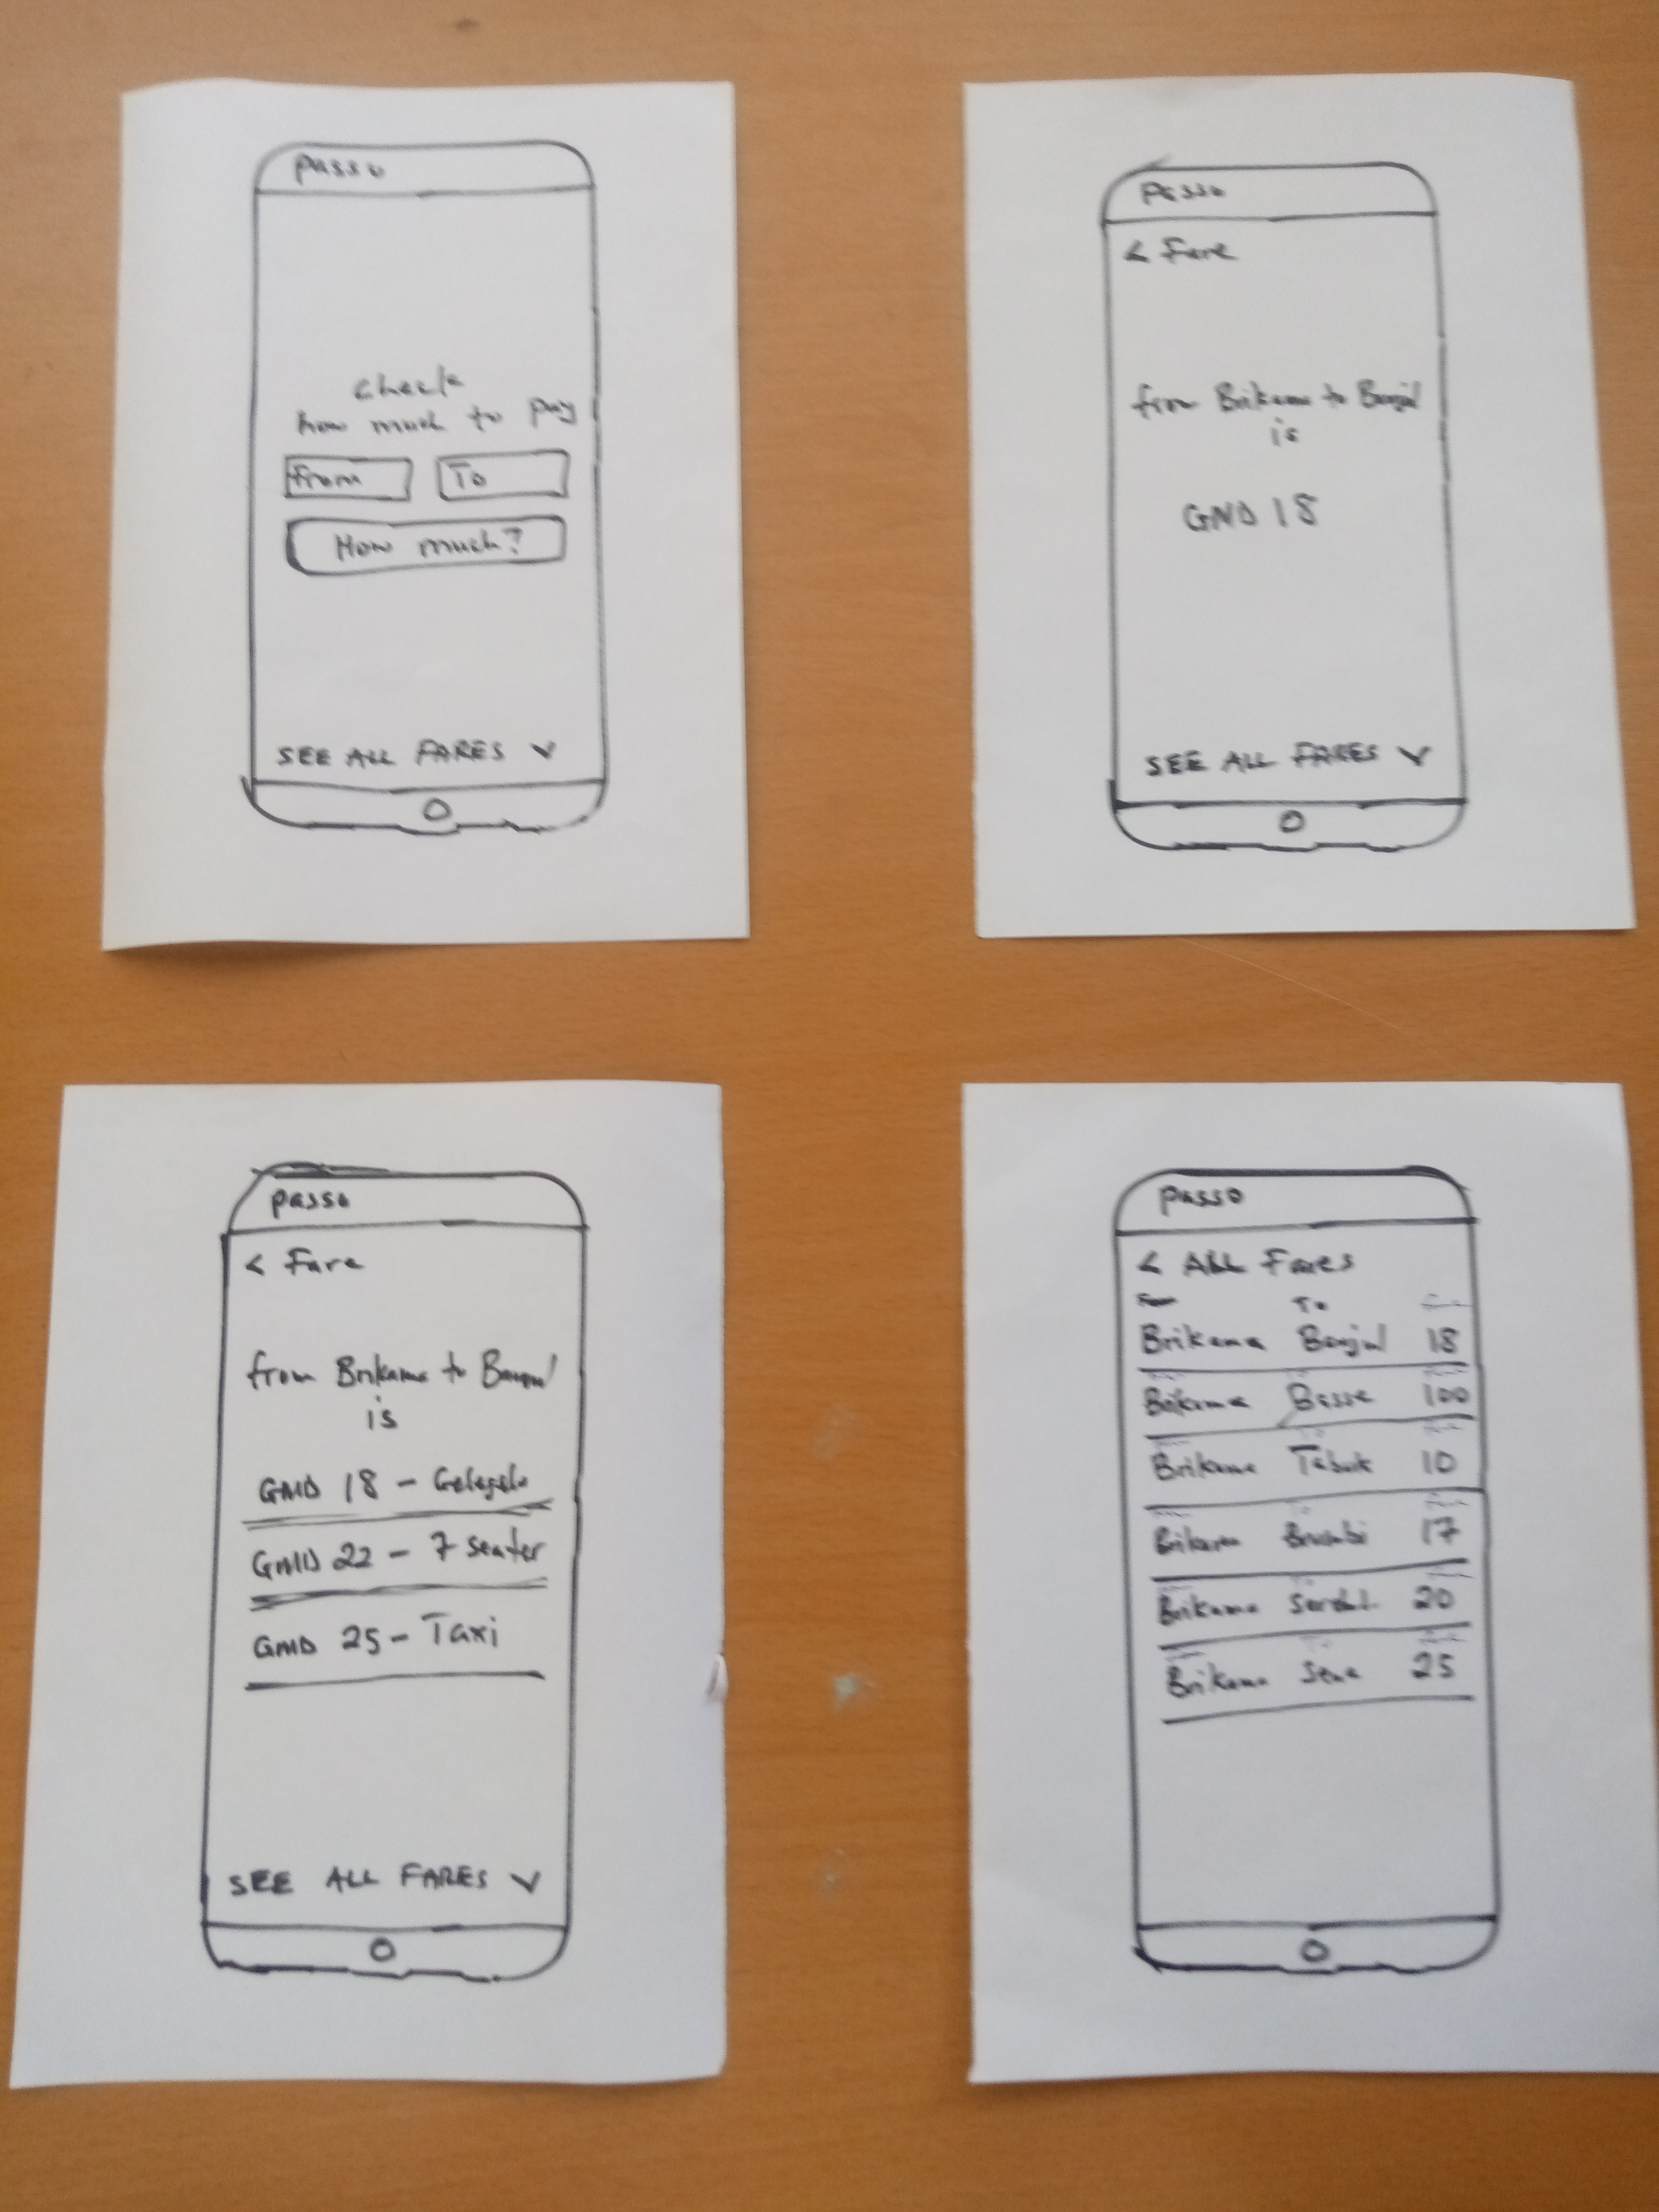 passo
check
how much to pay
From To
How much?
SEE ALL FARES
Passo
< Fare
from Brikama to Banjul
is
GND 18
SEE ALL FARES
passo
< Fare
from Brikama to Banjul
is
GMD 18 -
GMD 22 - 7 seater
GMD 25 - Taxi
SEE ALL FARES
passo
< ALL Fares
From To
Brikama Banjul 18
Brikama Basse 100
Brikama 10
Brikama 17
Brikama 20
Brikama 25